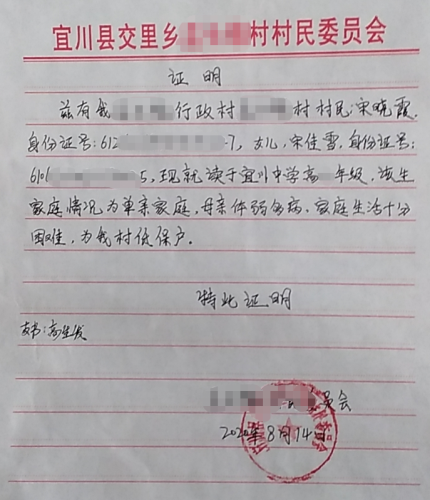 宜川县交里乡 村村民委员会
证明
兹有我 行政村 村村民:宋晓霞,
身份证号:612 7,女儿,宋佳雪,身份证号:
6101 5,现就读于宜川中学高 年级,该生
家庭情况为单亲家庭,母亲体弱多病,家庭生活十分
困难,为我村低保户。
特此证明
支书:高生发
员会
2020年8月14日